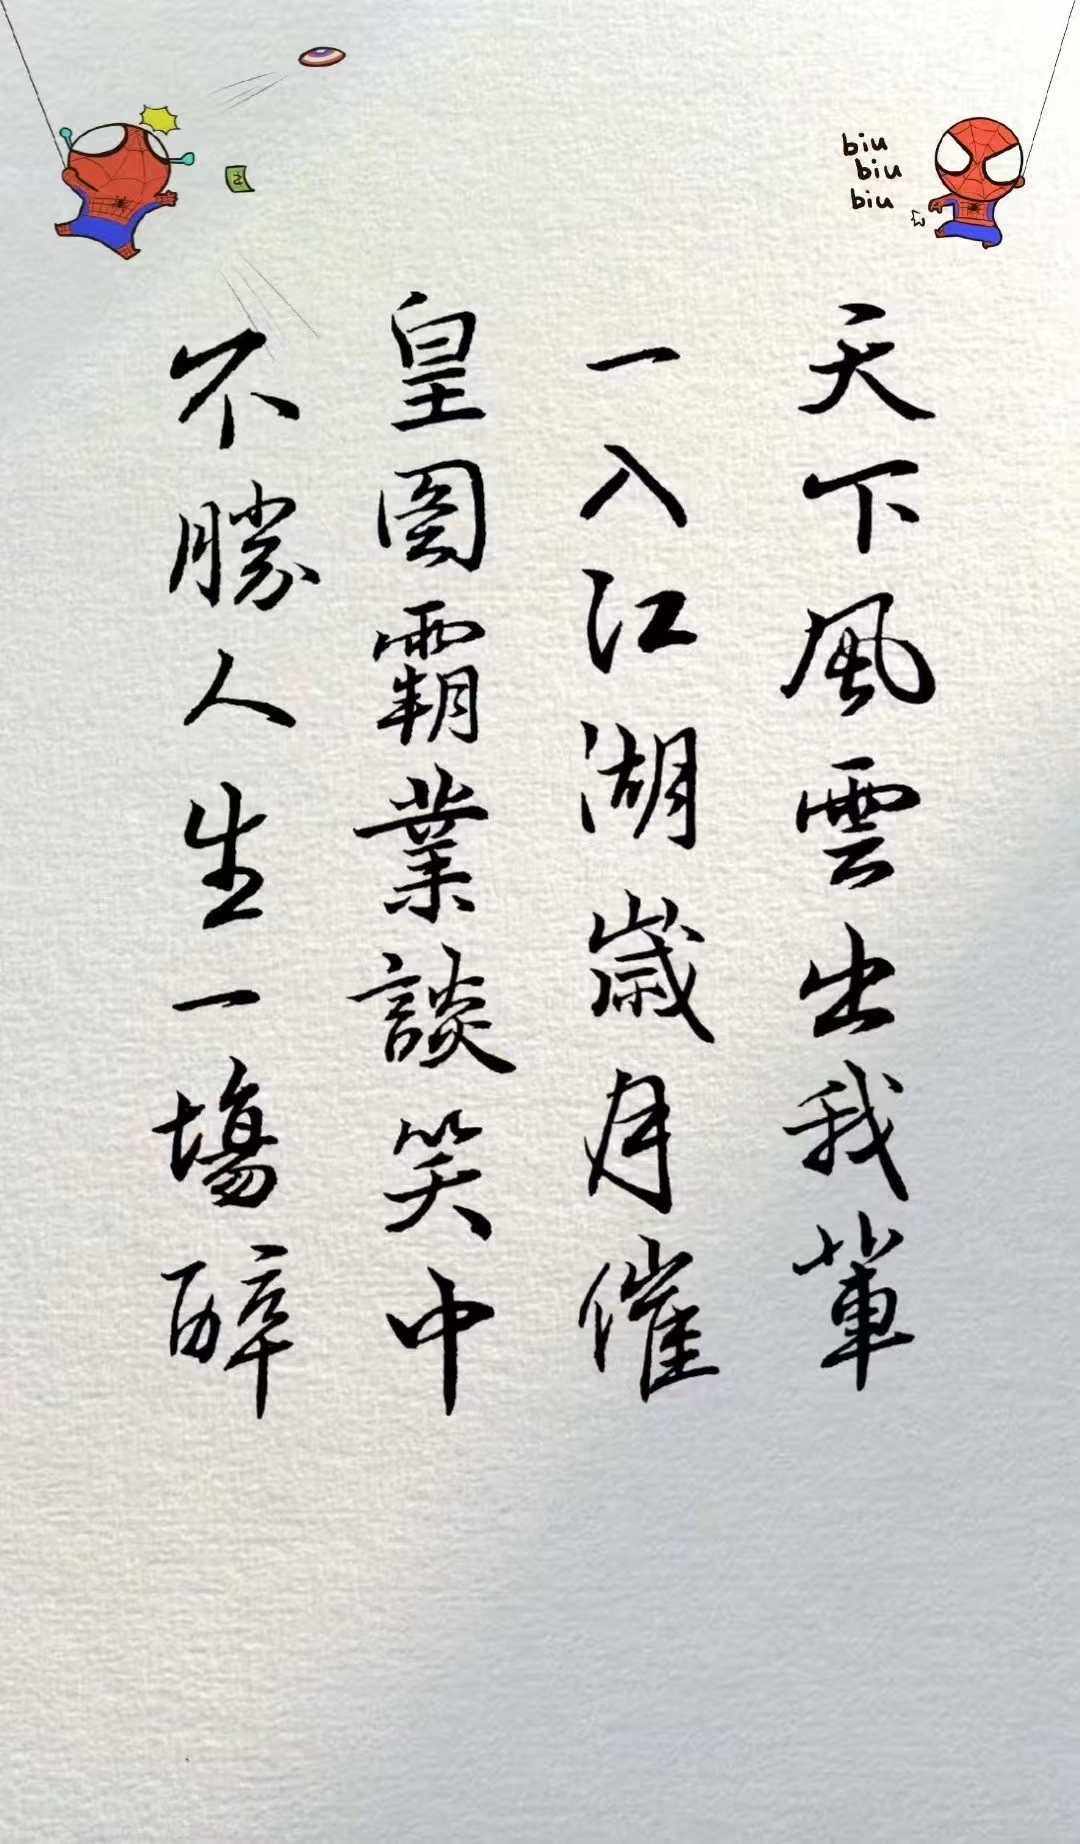 天下風雲出我輩
一入江湖歲月催
皇圖霸業談笑中
不勝人生一場醉
biu
biu
biu